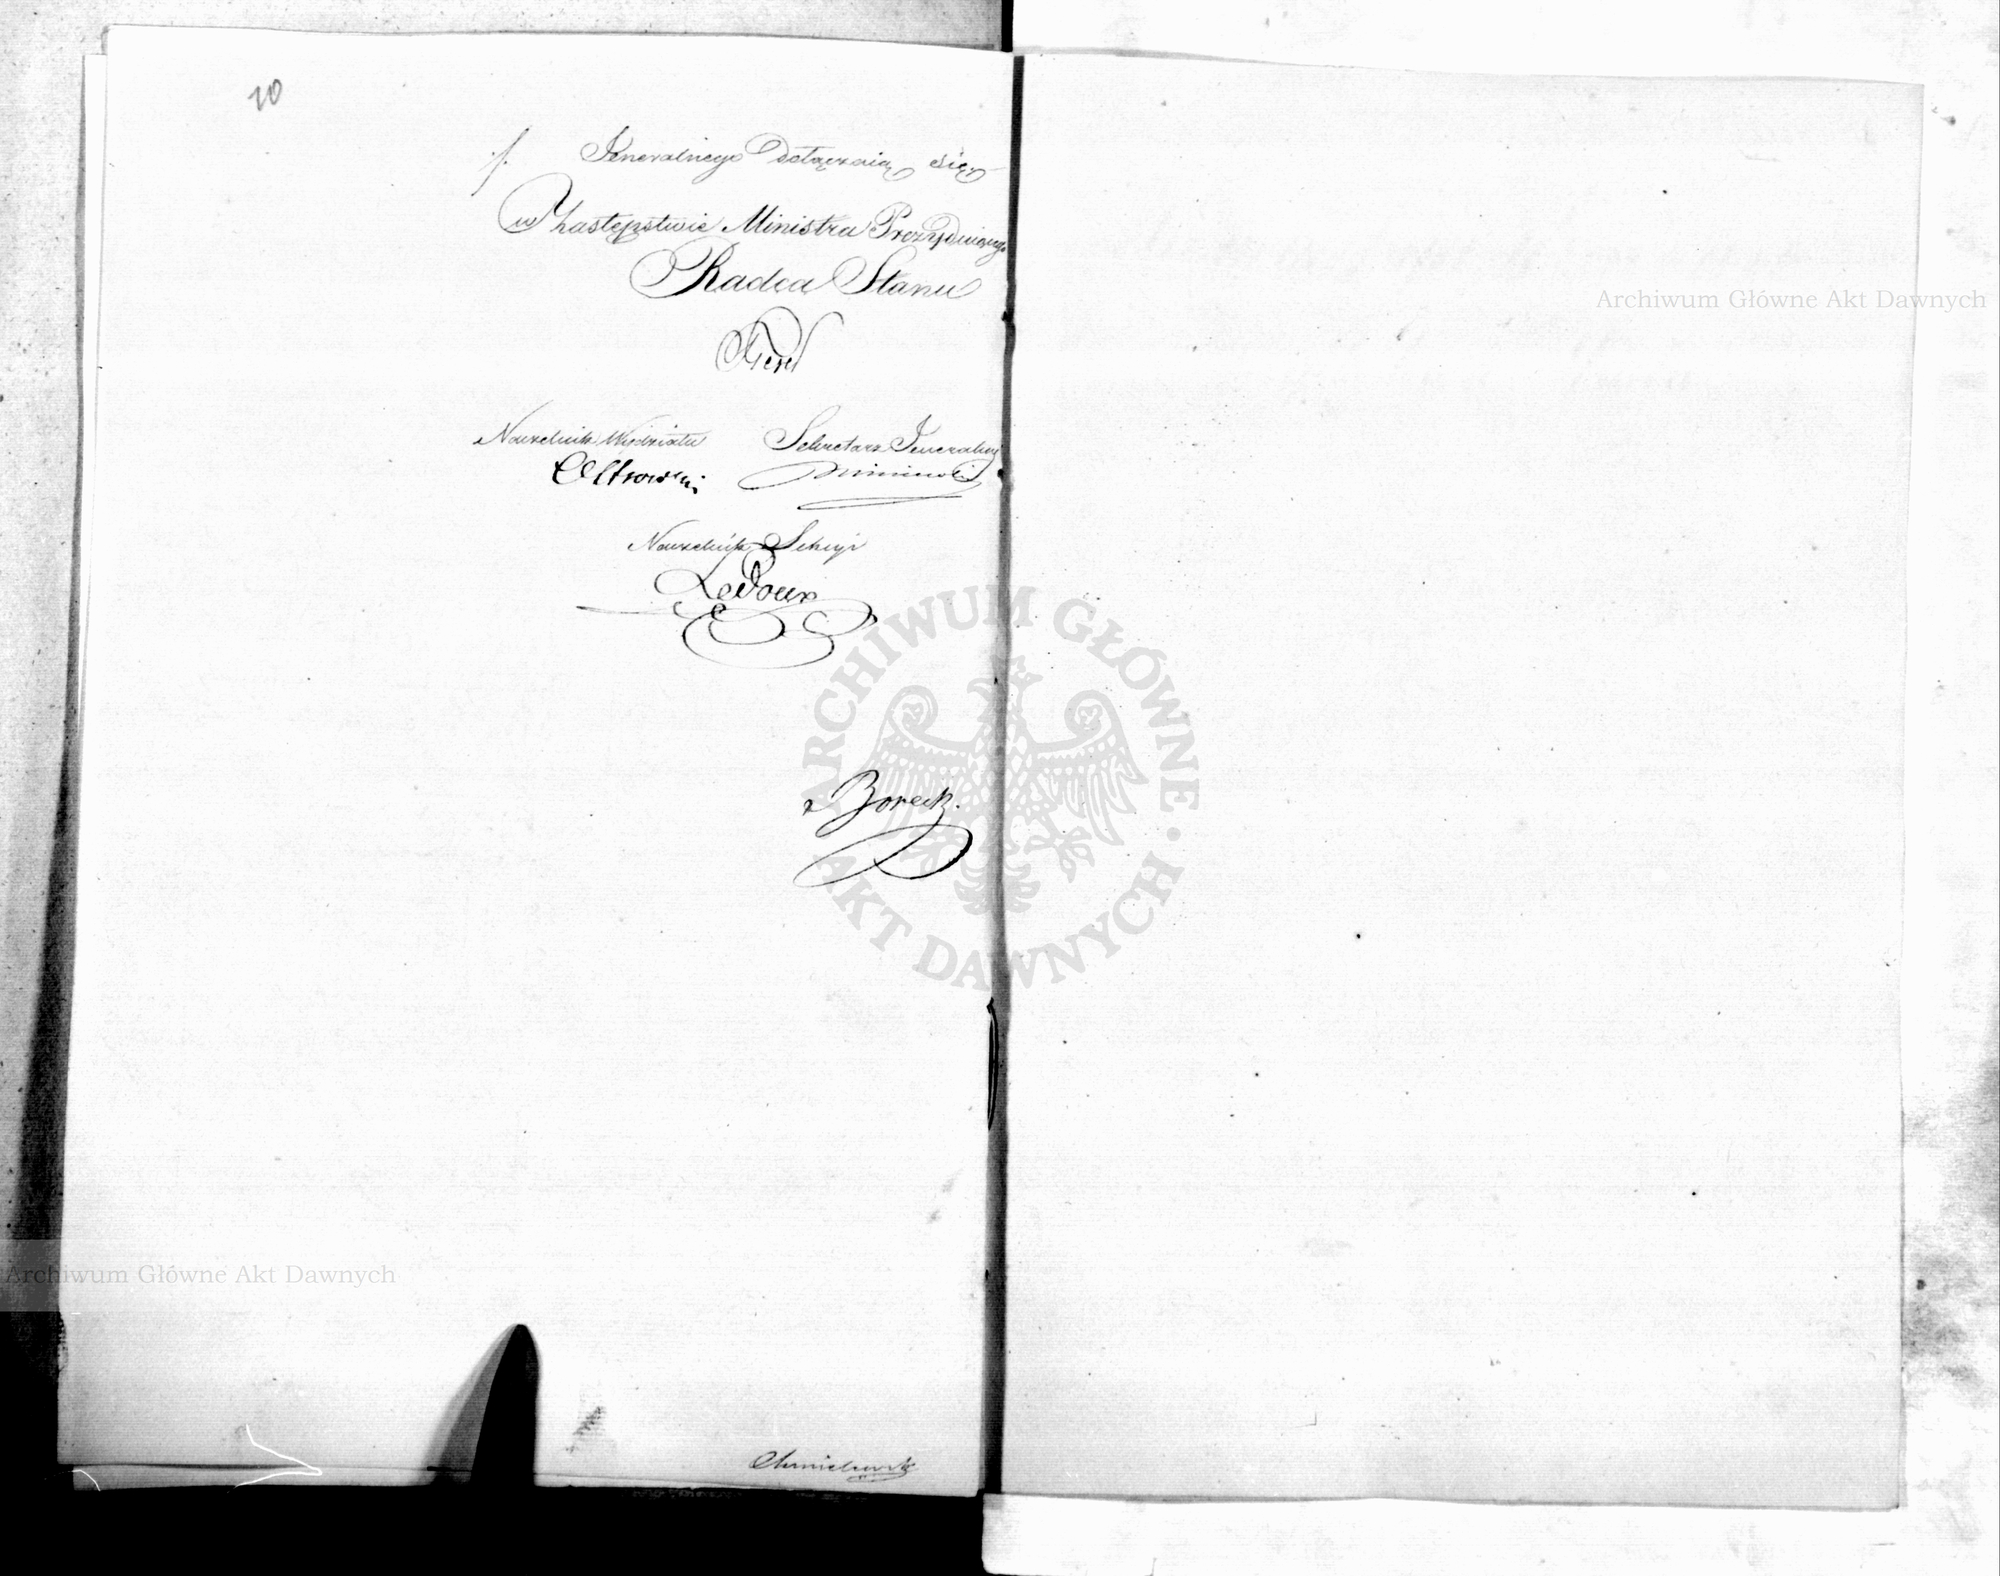 10
./. Jeneralnego Dołączaią się
w Zastępstwie Ministra Prezyduiącego
Radca Stanu
Naczelnik Wydziału Sekretarz Jeneralny
Ostrowski
Naczelnik Sekcyi
Ledoux
Archiwum Główne Akt Dawnych
ARCHIWUM GŁÓWNE AKT DAWNYCH
Archiwum Główne Akt Dawnych
Chmielewski